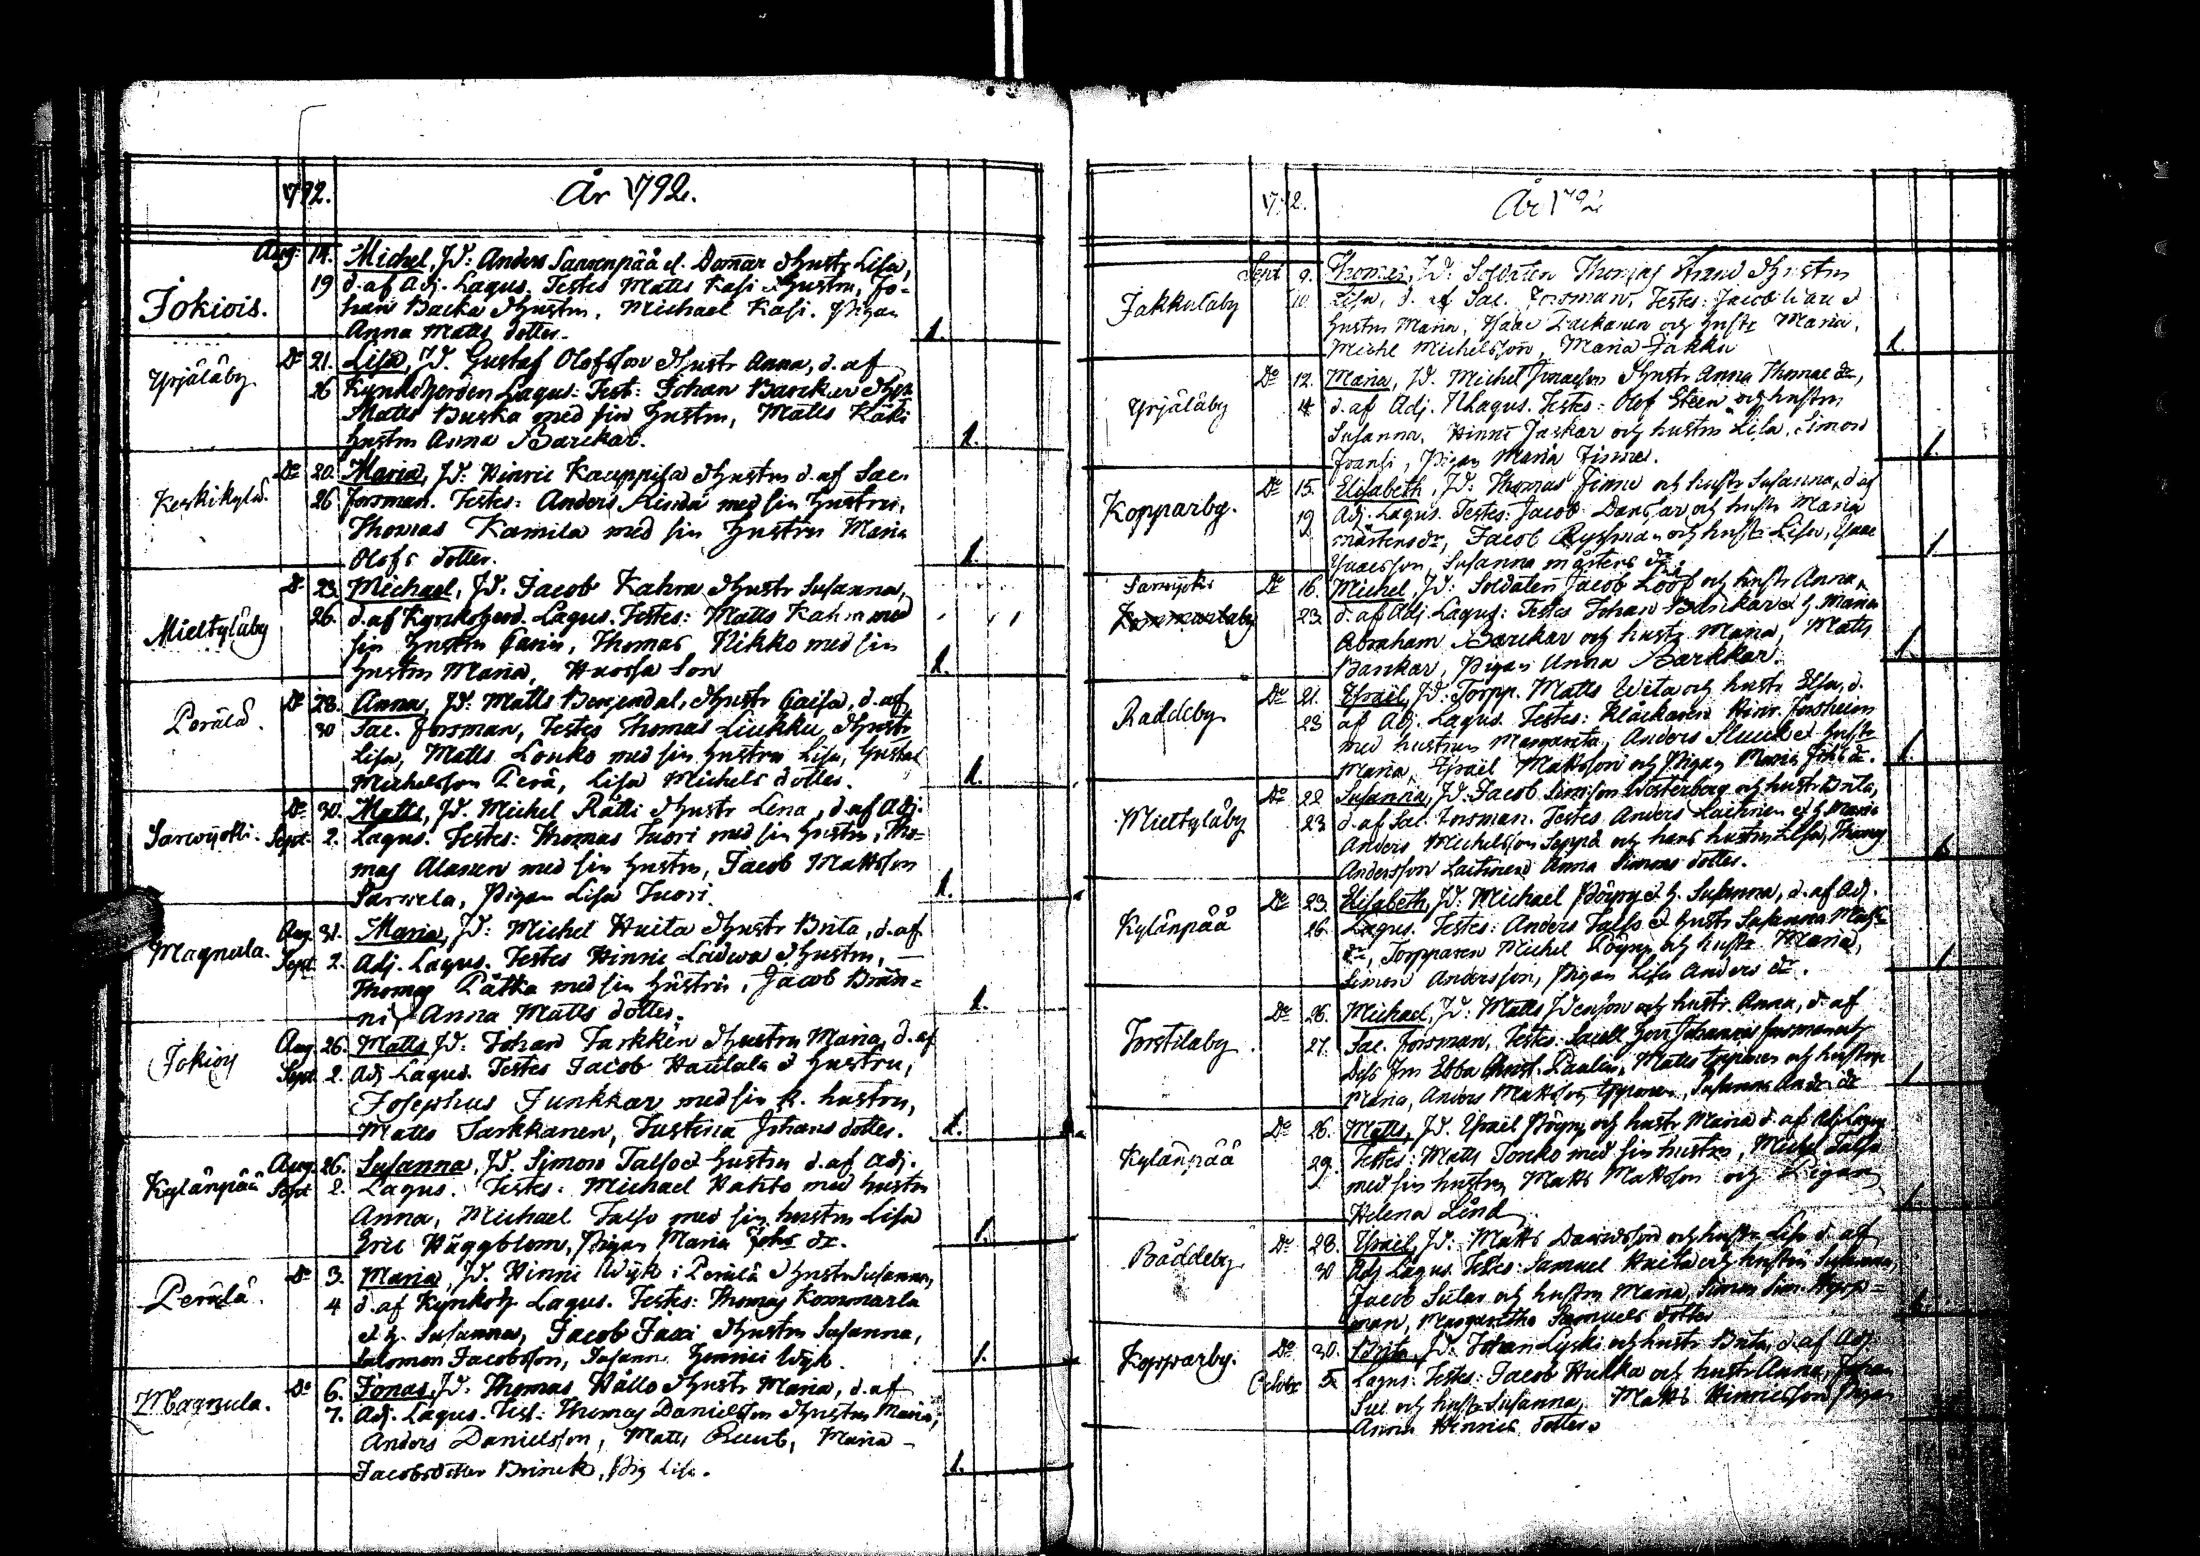 1792. År 1792.
Aug: 14. Michel, J.D: Anders Sarvenpää d. Domar d Hustr Lisa,
Jokiois. 19 d. af Adj. Lagus. Testes Matts Kasi d Hustru, Jo-
han Backa d Hustru, Michael Kasi. Pigan
Anna Matts dotter. 1.
Do 21. Lisa, J.D. Gustaf Olofsson d Hustr Anna, d. af
Yrjäläby 26 Kyrkoherden Lagus: Test: Johan Barckar d Hust
Matts Buska med sin Hustru, Matts Käki
Hustru Anna Barckar. 1.
Do 20. Maria, J.D: Hinric Kauppila d Hustru d. af Sac.
Keskikylä 26 Forsman. Testes: Anders Rinda med sin Hustru,
Thomas Kamila med sin Hustru Maria
Olofs dotter. 1.
Do 23. Michael, J.D. Jacob Kahra d Hustr Susanna,
Mieltyläby 26. d. af Kyrkoherd. Lagus. Testes: Matts Kahra med
sin Hustru Carin, Thomas Nikko med sin
Hustru Maria, son 1.
Do 28. Anna, J.D: Matts Bergendal, d Hustr Caisa, d. af
Perälä. 30 Sac. Forsman, Testes Thomas Liukku d Hustr
Lisa, Matts Louko med sin Hustru Lisa, Gustaf
Michelsson Perä, Lisa Michels dotter. 1.
Do 30. Matts, J.D. Michel Rätti d Hustr Lena, d. af Adj.
Sarwijoki. Sept. 2. Lagus. Testes: Thomas Tuori med sin Hustru, Tho-
mas Alanen med sin Hustru, Jacob Mattsson
Sarwela, Pigan Lisa Tuori. 1.
Aug. 31. Maria, J.D: Michel Huita d Hustr Brita, d. af
Magnula. Sept 2. Adj. Lagus. Testes Hinric Ladwa d Hustru,
Thomas Pätkä med sin Hustru, Jacob Brän-
ni, Anna Matts dotter. 1.
Aug. 26. Matts J.D: Johan Tarkken d Hustru Maria, d. af
Jokiois Sept 2. Adj Lagus. Testes Jacob Hautala d Hustru,
Josephus Junkkar med sin k. hustru,
Matts Tarkkanen, Justina Johans dotter. 1.
Aug. 26. Susanna, J.D. Simon Talso d Hustru d. af Adj.
Kylänpää Sept 2. Lagus. Testes: Michael Hatito med hustru
Anna, Michael Talso med sin hustru Lisa
Eric Häggblom, Pigan Maria Johs dr. 1.
Do 3. Maria, J.D. Hinric Wijk i Perälä d Hustr Susanna,
Perälä. 4 d. af Kyrkoh. Lagus. Testes: Thomas Kommarla
d. h. Susanna, Jacob Jaxi d Hustru Susanna,
Salomon Jacobsson, Susann Henrici Wijk. 1.
Do 6. Jonas, J.D: Thomas Hållo d Hustr Maria, d. af
Magnula. 7. Adj. Lagus. Test: Thomas Danielsson d Hustru Maria,
Anders Danielsson, Matts Maria
Jacobsdotter Brinck, Pig Lisa. 1.
1792. År 1792
Sept 9. Thomas, J.D: Soldaten Thomas Strand d Hustru
Jakkulaby 10. Lisa, d. af Sac. Forsman, Testes: Jacob d
Hustru Maria, Isaac Zackanen och Hustr Maria,
Michl Michelsson, Maria Jakku 1.
Do 12. Maria, J.D. Michel Simonsson d Hustr Anna Thomae dr,
Yrjäläby 14. d. af Adj. Lagus. Testes: Olof Steen och hustru
Susanna, Hinric Jaskar och hustru Lisa, Simon
Fransi, Pigan Maria Finne. 1.
Do 15. Elisabeth, J.D: Thomas Finne och hustr Susanna, d af
Kopparby. 19 Adj. Lagus. Testes: Jacob Dansar och hustr Maria
Mårtens dr, Jacob Ryssman och hustr Lisa, Isaac
Isaacsson, Susanna Mårtens dr. 1
Sarwijoki Do 16. Michel, J.D: Soldaten Jacob Lööf och hustr Anna,
Kommarilaby 23. d. af Adj. Lagus: Testes Johan Barckar d h. Maria
Abraham Barckar och hustr Maria, Matts
Barckar, Pigan Anna Barkkar. 1.
Do 21. Israel, J.D: Torpp. Matts Wita och hustr Elsa, d.
Raddeby 23 af Adj. Lagus. Testes: Klåckaren Hinr. Forsheim
med hustrun Margareta, Anders d hustr
Maria, Israel Mattsson och Pigan Maria Johs dr. 1.
Do 22. Susanna, J.D: Jacob Simsson Westerberg och hustr Brita,
Mieltyläby 23 d. af Sac. Forsman. Testes Anders Laitinen d h. Maria
Anders Michelsson Seppä och hans hustru Lisa, Thomas
Andersson Laitinen Anna Simons dotter. 1.
Do 23. Elisabeth, J.D: Michael Pöyry d h. Susanna, d. af Adj.
Kylänpää 26. Lagus. Testes: Anders Talso d hustr Susanna Matts
dr, Torpparen Michel Pöyry och hustr Maria,
Simon Andersson, Pigan Lisa Anders dr. 1
Do 26. Michael, J.D: Matts Jvensson och hustr Anna, d. af
Torstilaby. 27. Sac. Forsman, Testes: Sacell. Herr Johannes Forsman och
dess Fru Ebba Christ. Paulin, Matts Epponen och hustru
Maria, Anders Mattsson Epponen, Susanna Anders dr 1
Do 26. Matts, J.D. Israel Pöyry och hustr Maria d. af Adj Lagus
Kylänpää 29. Testes: Matts Tonko med sin hustru, Michel Talso
med sin hustru, Matts Mattsson och Pigan
Helena Lind. 1.
Do 28. Israel, J.D: Matts Davidsson och hustr Lisa d. af
Råddeby. 30 Adj Lagus. Testes: Samuel Huita och hustru Susanna,
Jacob Sular och hustru Maria, Simon Sim.
man, Margaretha Samuels dotter 1.
Do 30. Brita, J.D. Johan Lyski och hustr Brita, d. af Adj.
Kopparby. Octobr 5. Lagus. Testes: Jacob Hulka och hustr Anna, Johan
Sul och hustr Susanna, Matts Hinricsson, Pigan
Anna Hinrics dotter.